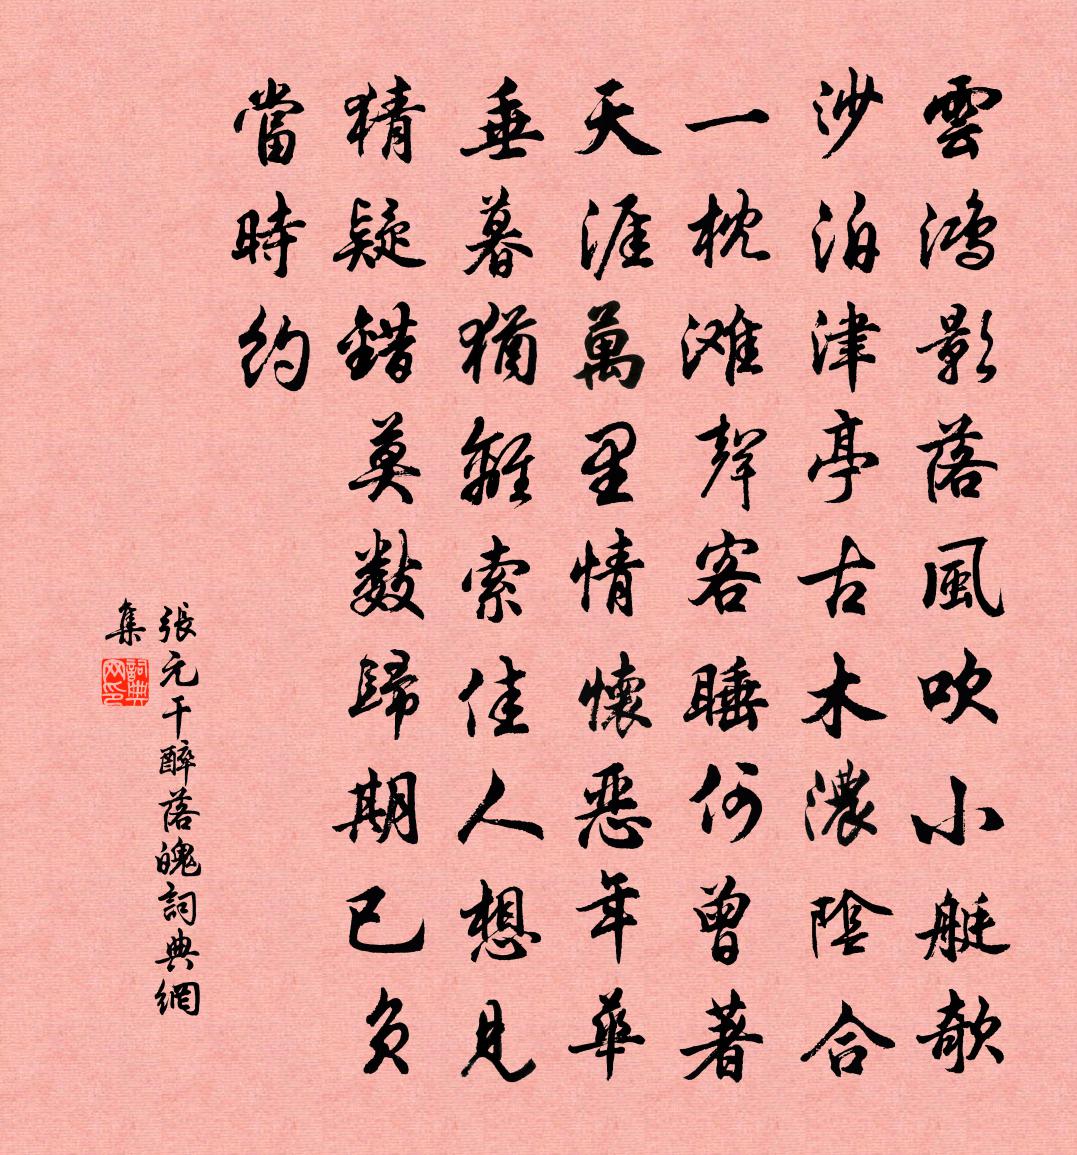 雲鴻影落風吹小艇欹
沙泊津亭古木濃陰合
一枕滩聲客睡何曾著
天涯萬里情懷惡年華
垂暮猶離索佳人想見
猜疑錯莫數歸期已負
當時約
張元干醉落魄詞典網
集
詞典
网印